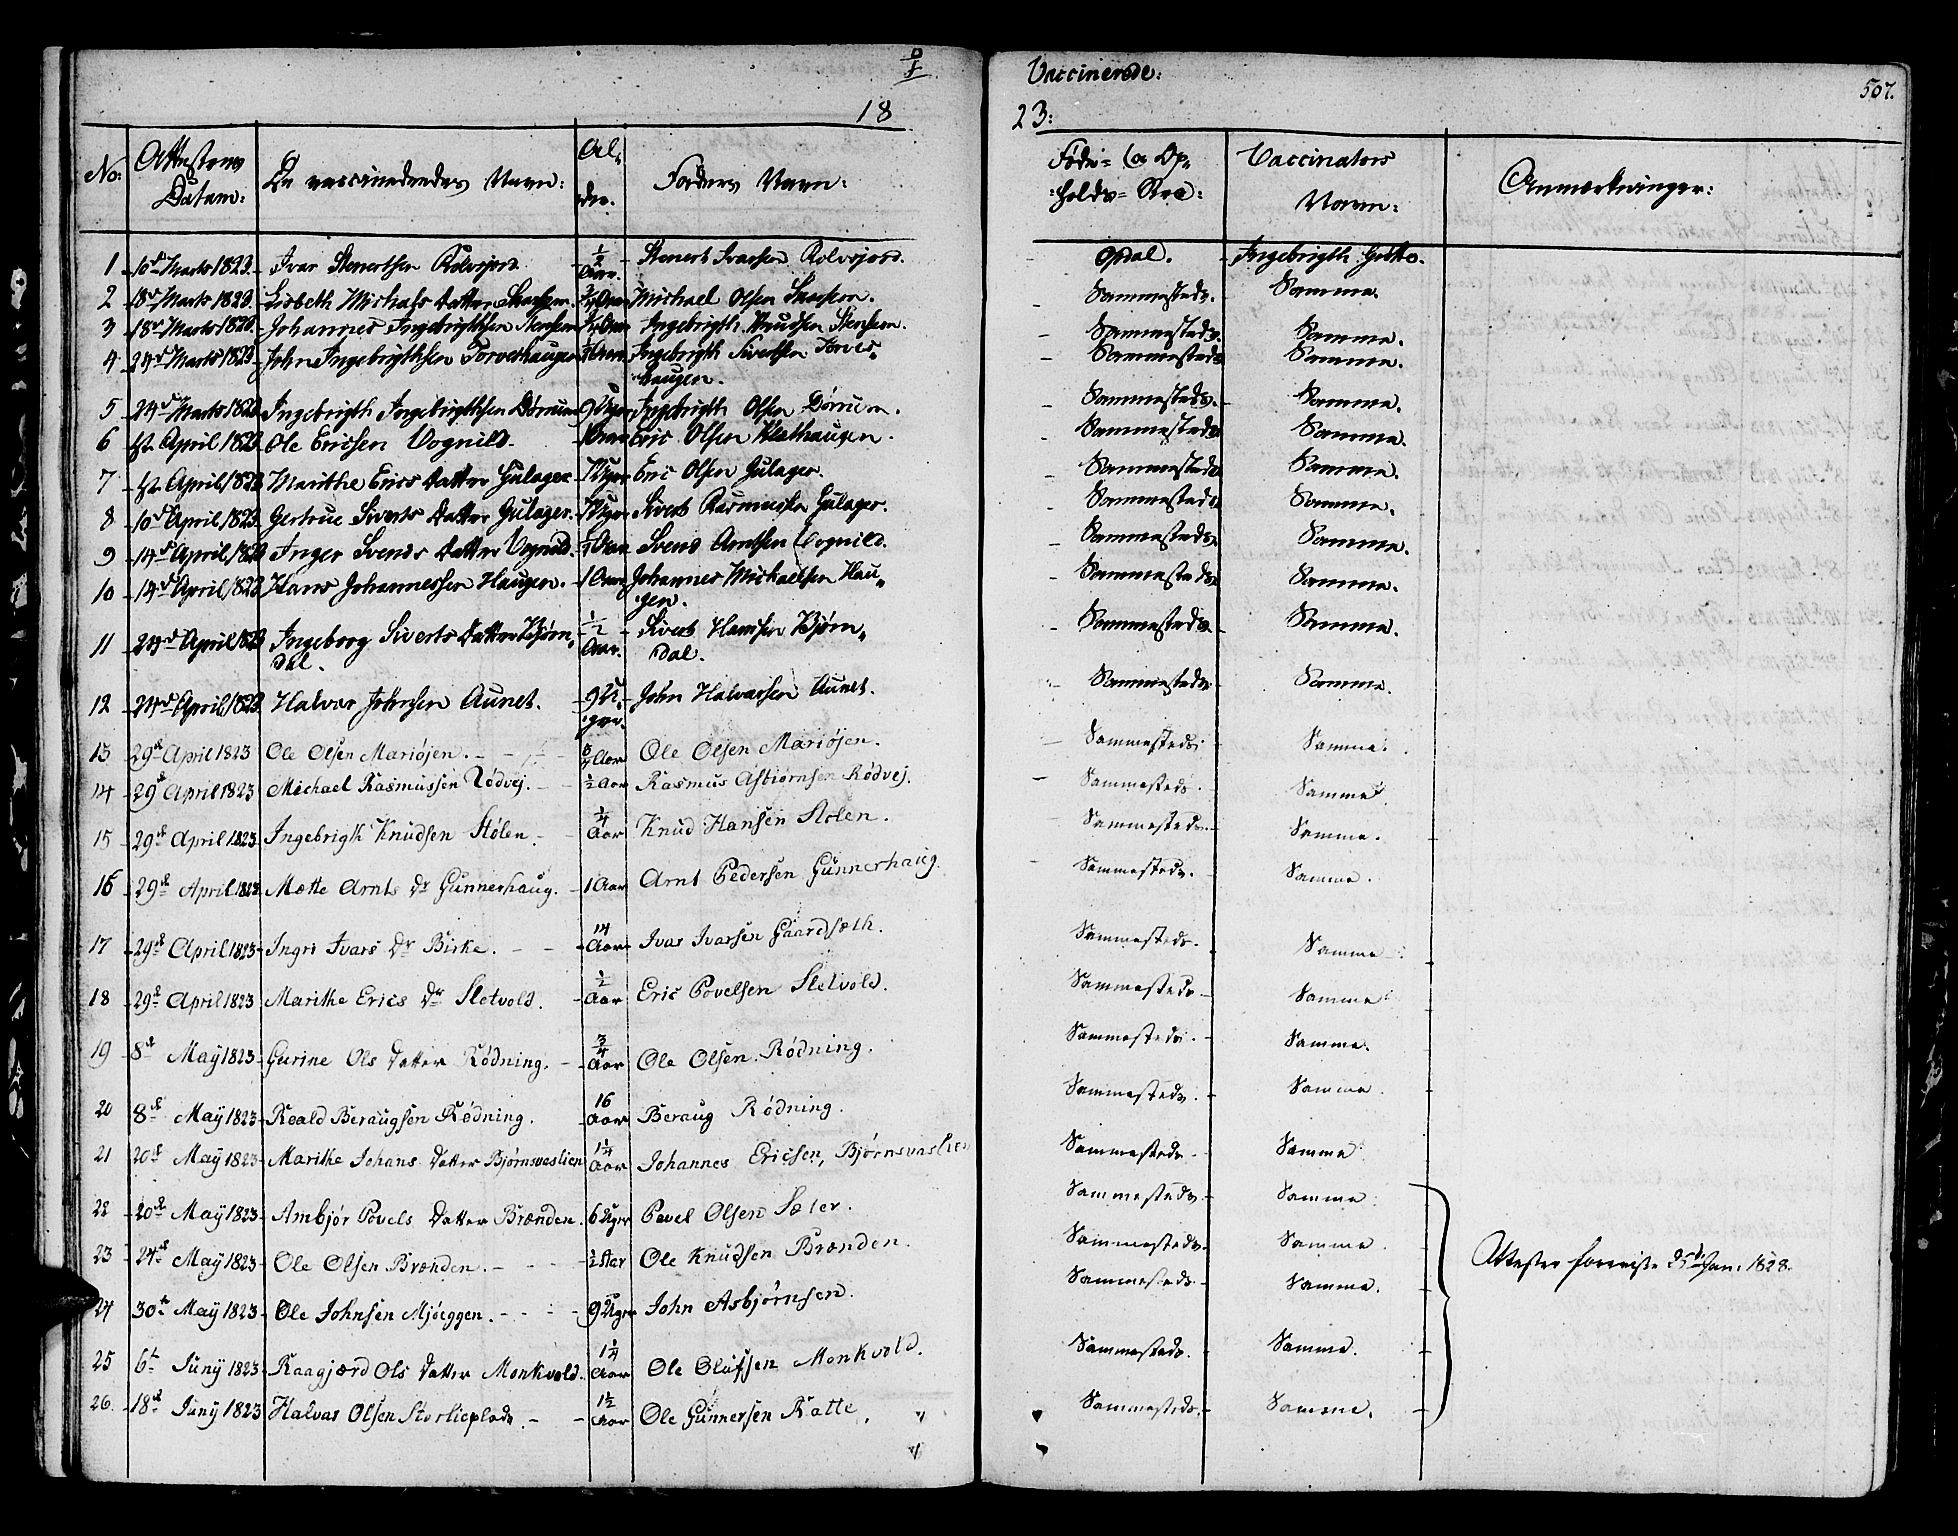 Vaccinerede:
507.
18
23:
No:
Attestens Datum:
De vaccineredes Navn:
Al- der.
Fordres Navn:
Føde- og Op- holds-
Vaccinators Navn:
Anmærkninger:
1 10d Marts 1823. Ivar Stenertsen Rolvsjord ½ Aar. Stenert Ivarsen Rolvsjord. Opdal. Ingebrigth
2 18d Marts 1823. Lisbeth Michals Datter Michael Olsen Sammesteds. Samme.
3 18d Marts 1823. Johannes Ingebrigthsen Stensem Aar Ingebrigth Knudsen Stensem. Sammesteds. Samme.
4 24d Marts 1823. John Ingebrigthsen Torveshaugen Aar Ingebrigth Sivertsen Torves-
haugen. Sammesteds Samme.
5 24d Marts 1823. Ingebrigth Ingebrigthsen Dørrum 9 Uger Ingebrigth Olsen Dørrum. Sammesteds. Samme.
6 April 1823. Ole Ericsen Vognild. Aar Eric Olsen Sammesteds Samme.
7 April 1823 Marithe Erics Datter Gulager Uger Eric Olsen Gulager. Sammesteds Samme.
8 10d April 1823. Gertrue Siverts Datter Gulager. Uger Sivert Rasmusen Gulager. Sammesteds Samme.
9 14d April 1823 Inger Svends Datter Vognild. Aar Svend Arntsen Vognild. Sammesteds. Samme.
10 14d April 1823 Hans Johannessen Haugen. 1 Aar Johannes Michaelsen Hau-
gen. Sammesteds Samme.
11 24d April 1823 Ingeborg Siverts Datter Bjørn-
dal. ½ Aar. Sivert Hansen Bjørn-
dal. Sammesteds. Samme.
12 24d April 1823. Halvor Johnsen Aunet. 9 U-
ger. John Halvorsen Aunet. Sammesteds Samme.
13 29d April 1823 Ole Olsen Mariøjen. ¾ Aar Ole Olsen Mariøjen. Sammesteds. Samme.
14 29d April 1823 Michael Rasmussen Rödvej. ½ Aar Rasmus Asbiørnsen Rödvej. Sammesteds. Samme.
15 29d April 1823 Ingebrigth Knudsen Stölen. ¼ Aar Knud Hansen Stolen. Sammesteds. Samme.
16 29d April 1823 Mætte Arnts Dr Gunnerhaug. 1 Aar Arnt Pedersen Gunnerhaug. Sammesteds. Samme.
17 29d April 1823 Ingri Ivars Dr Birke. 14 Aar Ivar Ivarsen Gaardsæth. Sammesteds. Samme
18 29d April 1823 Marithe Erics Dr Sletvold. ½ Aar Eric Povelsen Sletvold. Sammesteds. Samme
19 8d May 1823 Gurine Ols Datter Rödning. ¾ Aar Ole Olsen Rödning. Sammesteds. Samme.
20 8d May 1823 Roald Beraugsen Rödning. 16 Aar Beraug Rödning. Sammesteds. Samme
21 20d May 1823 Marithe Johans Datter Bjørnsvaslien 1¼ Aar Johannes Ericsen, Bjørnsvaslien Sammesteds. Samme
22 20d May 1823 Ambjör Povels Datter Brænden. 6 Uger Povel Olsen Sæter. Sammesteds. Samme
23 24d May 1823 Ole Olsen Brænden. ½ Aar Ole Knudsen Brænden. Sammesteds. Samme.
Attester 1828.
24 30te May 1823 Ole Johnsen Mjöeggen. 9 Uger John Asbjørnsen. Sammesteds. Samme.
25 6te Juny 1823 Raagjærd Ols Datter Monkvold. 1¼ Aar Ole Olufsen Monkvold. Sammesteds. Samme.
26. 18d Juny 1823 Halvar Olsen 1½ Aar Ole Gunnersen Ratte. Sammesteds. Samme.